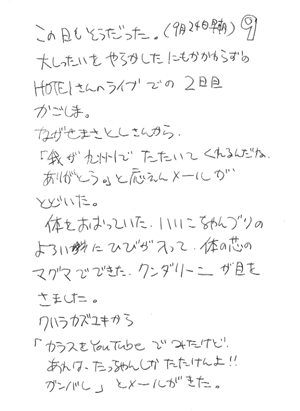 この日もそうだった。(9月24日早朝) ⑨
大しったいを やらかしたにもかかわらずの
HOTEIさんのライブでの 2日目
かごしま。
ながせまさとしさんから、
「我が九州で たたいてくれるんだね、
ありがとう。」と応えんメールが
とどいた。
体をおおっていた、いいこちゃんづらの
よろいにひびが入って、体の芯の
マグマでできた、クンダリーニが目を
さました。
クハラカズユキから
「カラスをYouTubeでみたけど、
あれは、たっちゃんしかたたけんよ!!
ガンバし」とメールがきた。